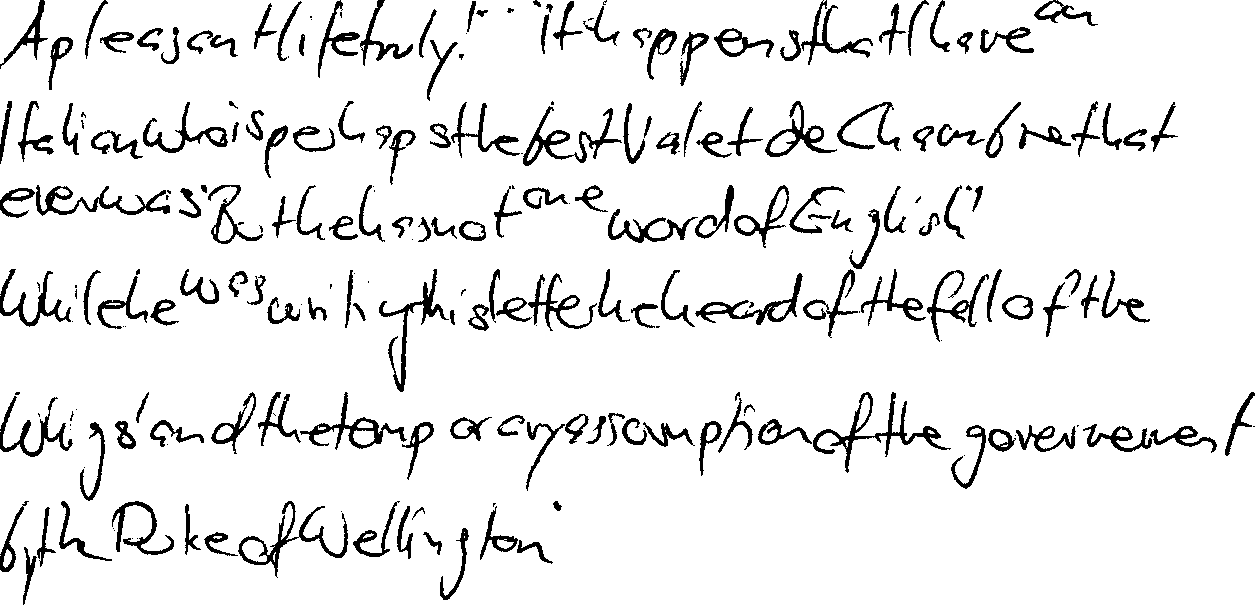 A pleasant life truly!" . . "It happens that I have an
Italian who is perhaps the best Valet de Chambre that
ever was. "But he has not one word of English"
While he was writing this letter he heard of the fall of the
Whigs' and of the temporary assumption of the governement
by the Duke of Wellington.